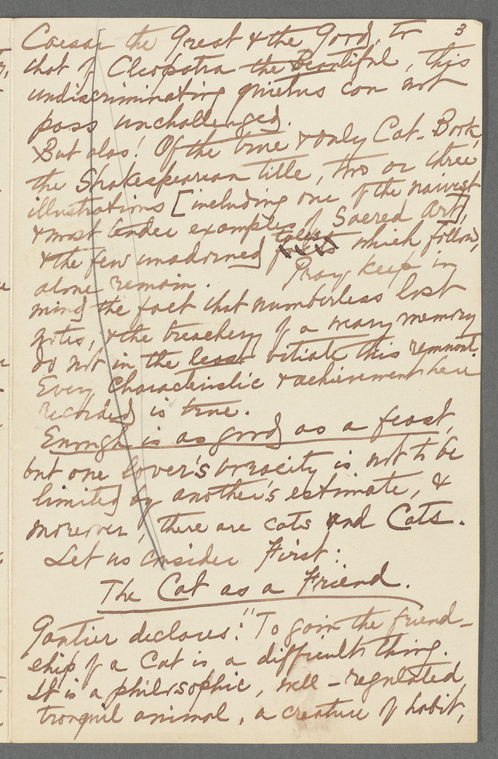 3
Caesar the Great & the Good, to
that of Cleopatra the beautiful, this
undiscriminating quietus can not
pass unchallenged.
But alas! Of the true & only Cat. Book,
the Shakespearian title, two or three
illustrations [including one of the naivest
& most tender examples of Sacred Art],
& the few unadorned tales which follow,
alone remain. Pray keep in
mind the fact that numberless lost
notes, & the treachery of a weary memory
do not in the least vitiate this remnant.
Every characteristic & achievement here
recorded is true.
Enough is as good as a feast,
but one lover's voracity is not to be
limited by another's estimate, &
moreover, there are cats and Cats.
Let us consider First:
The Cat as a Friend.
Gautier declares: "To gain the friend-
ship of a Cat is a difficult thing.
It is a philosophic, well-regulated
tranquil animal, a creature of habit,